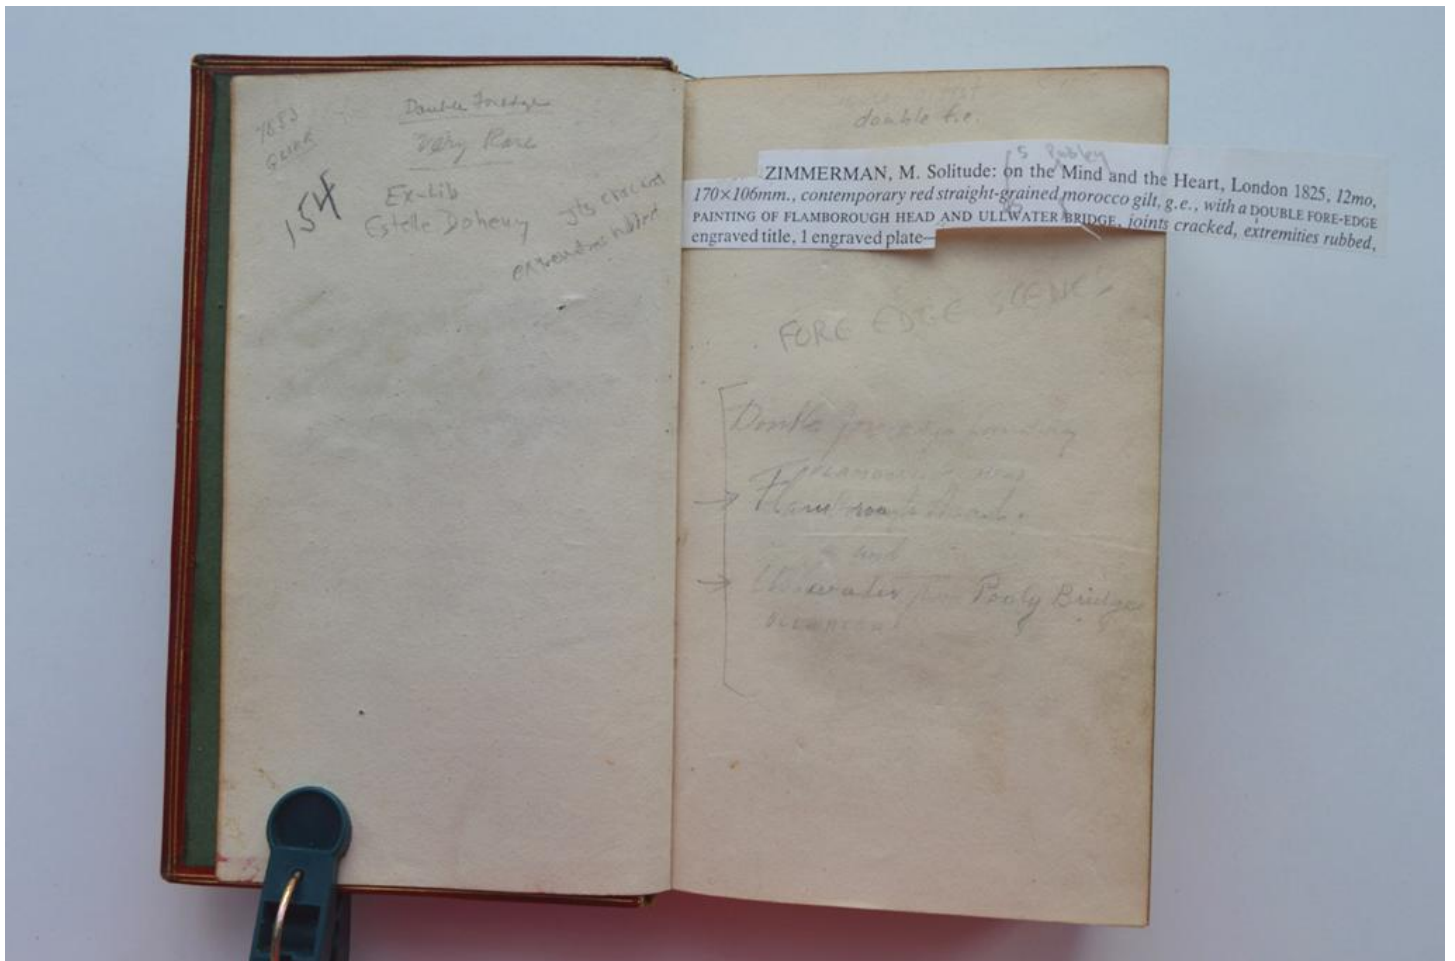 Double Foredge
Very Rare
154
Ex-Lib
Estelle Doheny
jts cracked
extremities rubbed
double f.e.
5 Pooley
ZIMMERMAN, M. Solitude: on the Mind and the Heart, London 1825, 12mo,
170×106mm., contemporary red straight-grained morocco gilt, g.e., with a DOUBLE FORE-EDGE
PAINTING OF FLAMBOROUGH HEAD AND ULLWATER BRIDGE, joints cracked, extremities rubbed,
engraved title, 1 engraved plate—
FORE EDGE SCENES
Double fore edge painting
Flamborough Head
and
Ullswater from Pooly Bridge